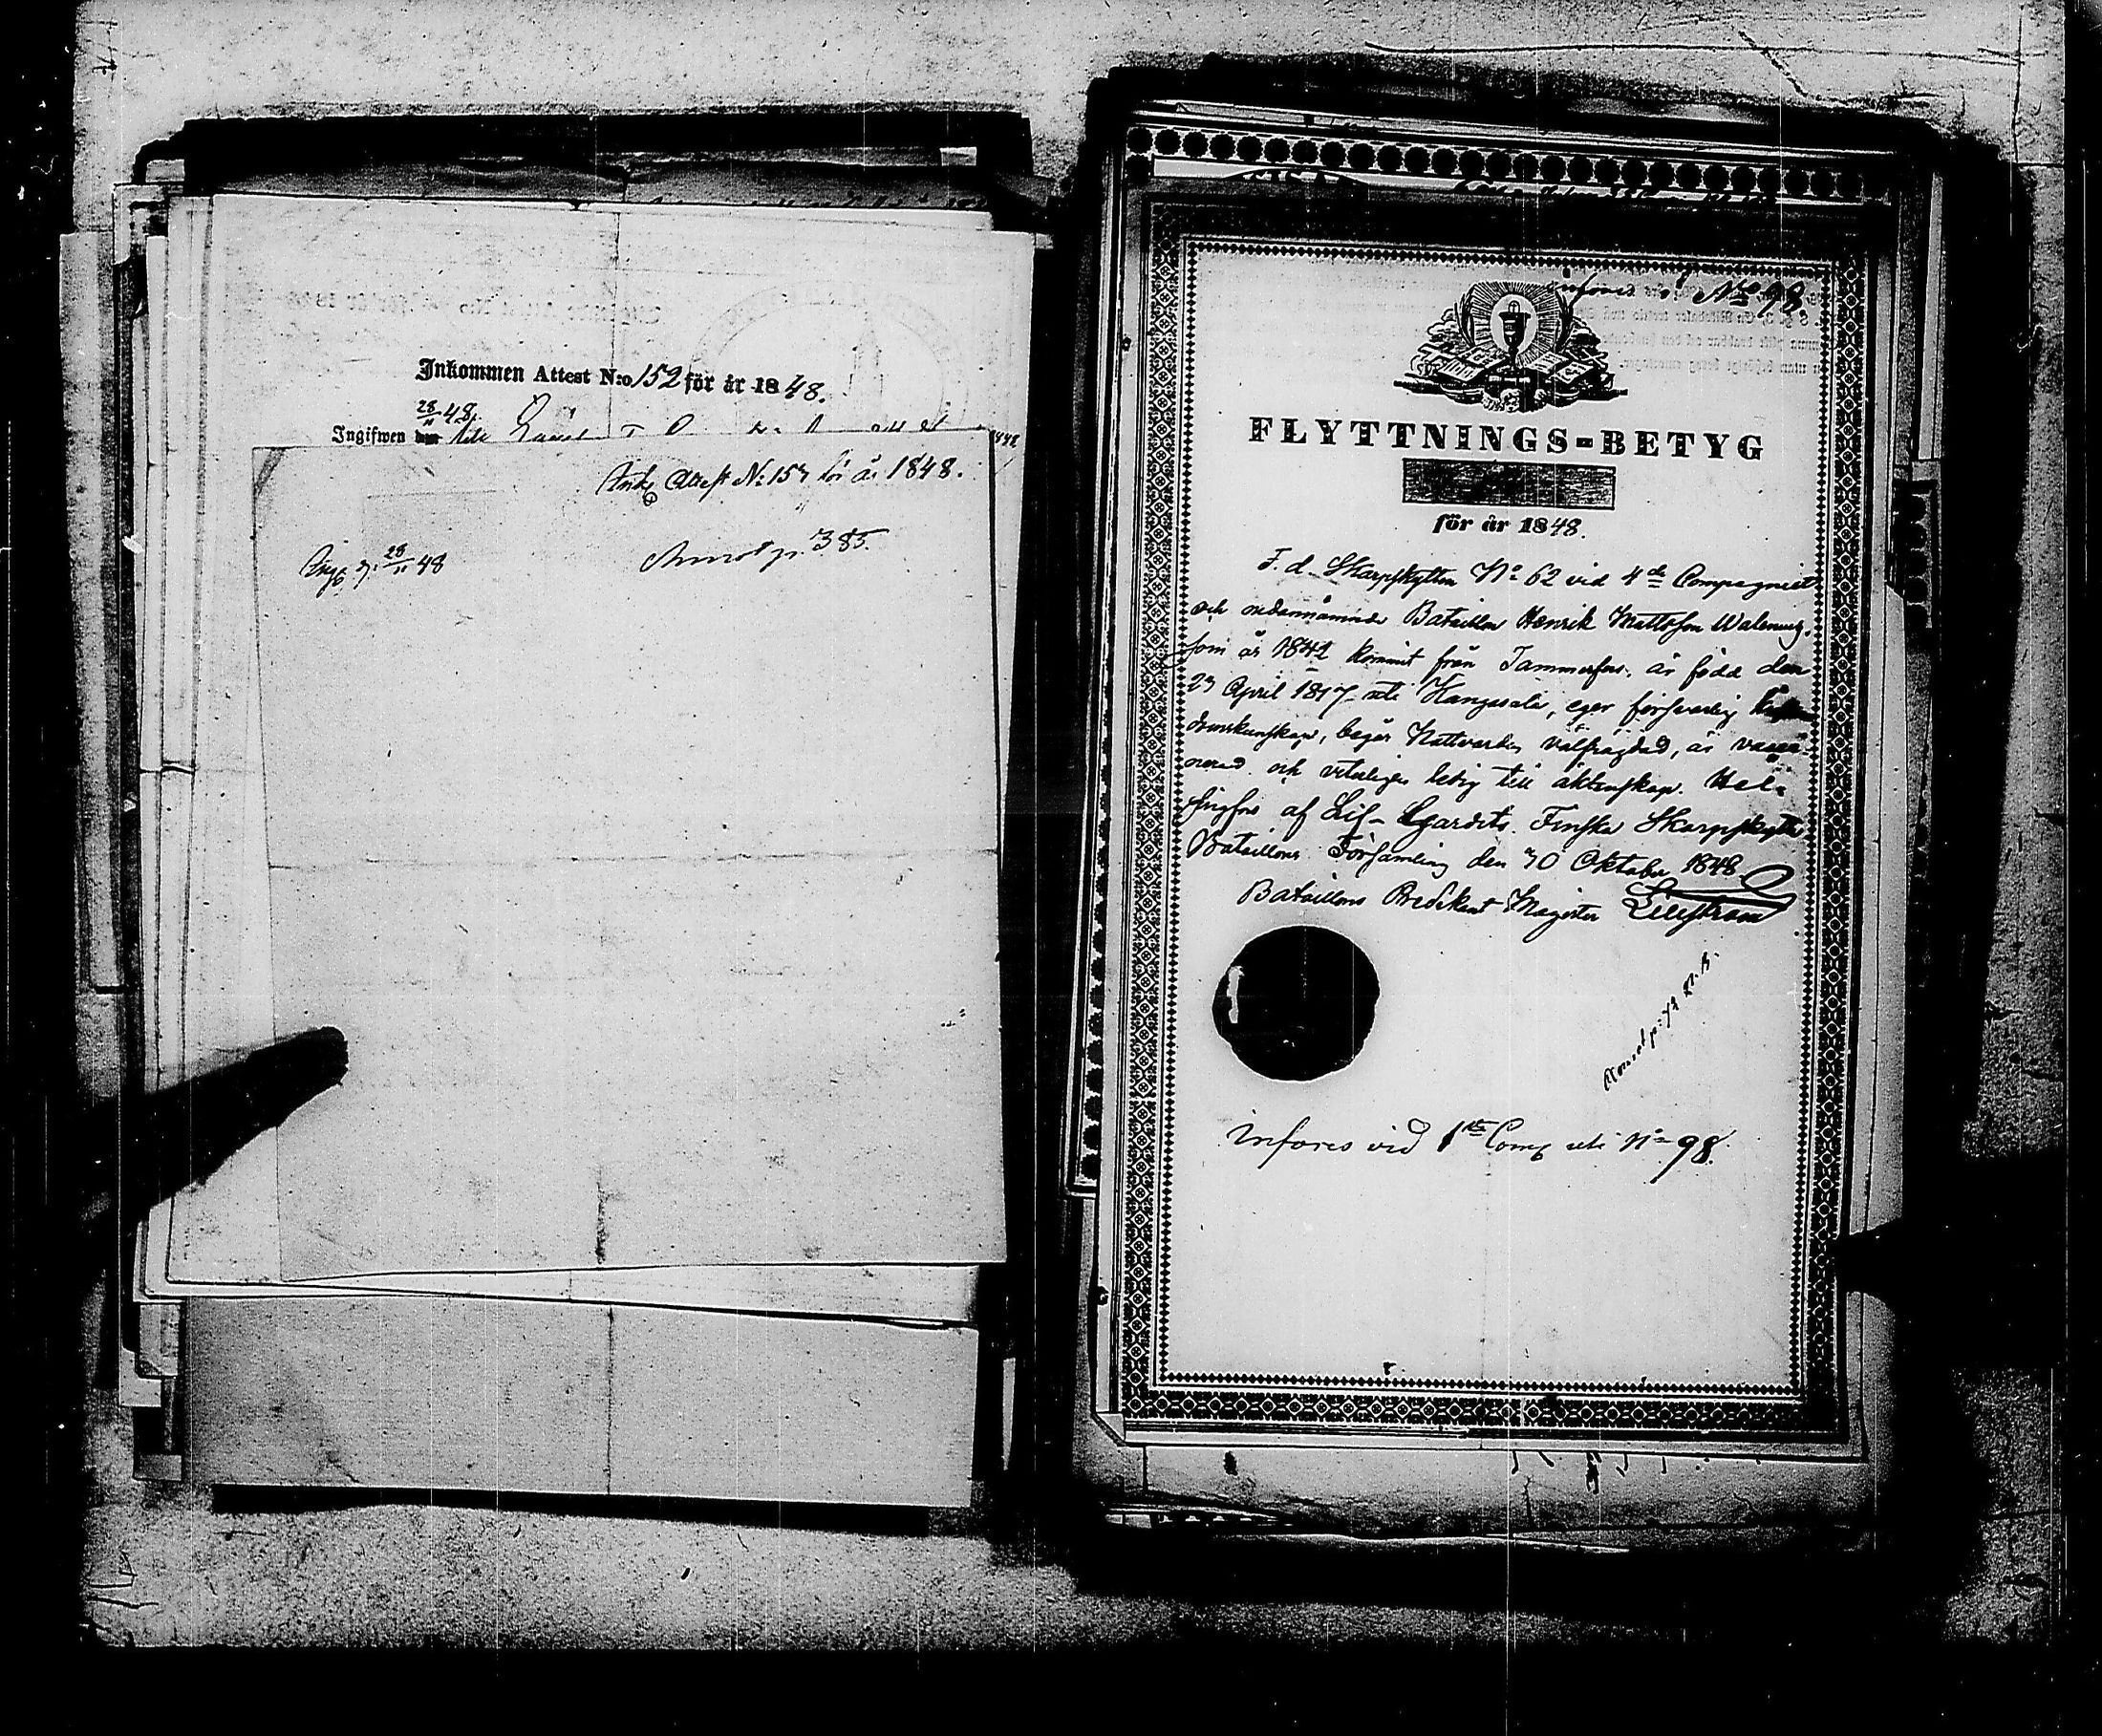 Inkommen Attest N:o 152 för år 1848.
28/11 48.
Ingifwen
Ink. Attest No 153 för år 1848.
Ing. d. 28/11 48
Annot p. 385.
införes
No 98.
FLYTTNINGS-BETYG
för år 1848.
F. d. Skarpskytten No 62 vid 4de Compagniet
och nedannämnde Bataillon Henrik Mattsson
som år 1842 kommit från Tammerfors, är född den
23 April 1817 uti Kangasala, eger försvarlig
domskunskap, begår Nattvarden välfrägdad, är vacci-
nerad och veterligen ledig till äktenskap. Hel-
singfors af Lif-Gardets Finska Skarpskytte
Bataillons Församling den 30 Oktober 1848.
Bataillons Predikant Magister
Annot p:
Införes vid 1sta Comp uti No 98.